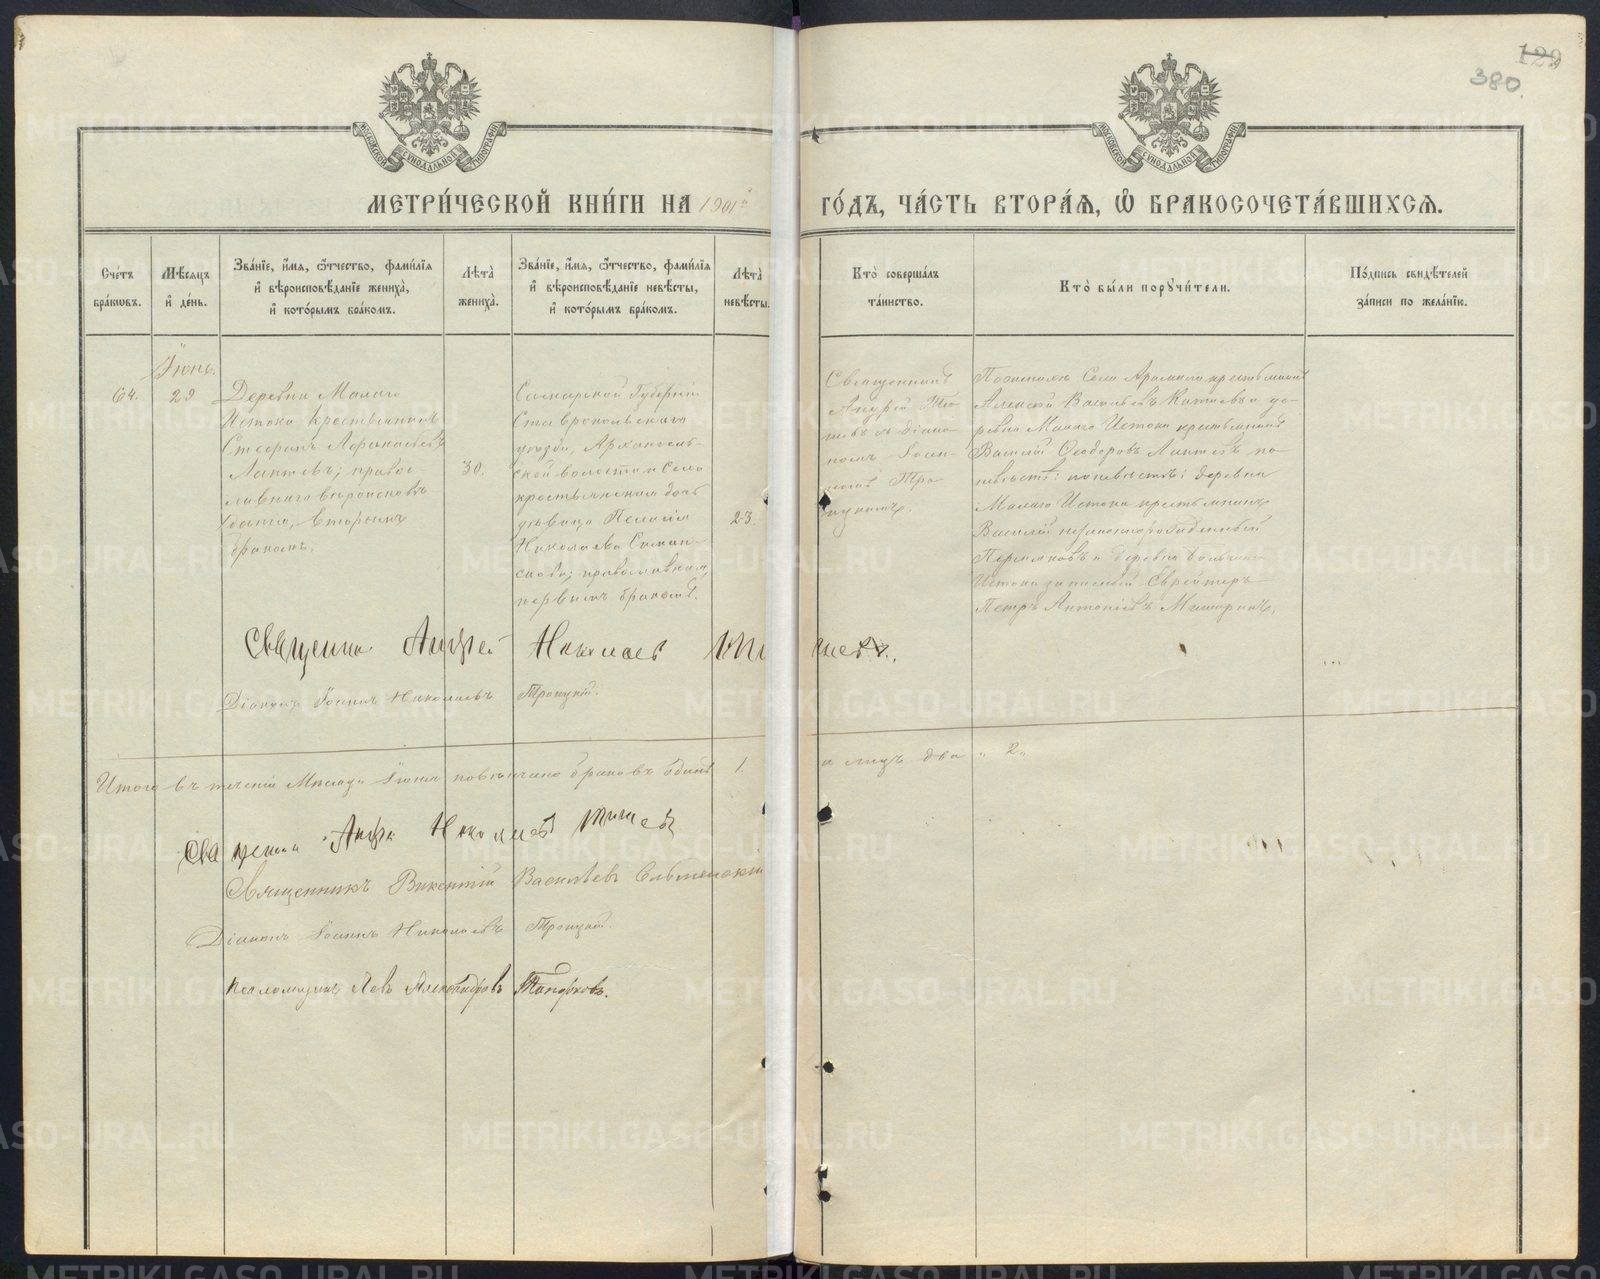 129
380.
МОСКОВСКОЙ СѴНОДАЛЬНОЙ ТИПОГРАФІИ
МОСКОВСКОЙ СѴНОДАЛЬНОЙ ТИПОГРАФІИ
МЕТРИ́ЧЕСКОЙ КНИ́ГИ НА 1901й ГО́ДЪ, ЧА́СТЬ ВТОРА́Ѧ, Ѡ҆ БРАКОСОЧЕТА́ВШИХСѦ.
Сче́тъ бра́кѡвъ.
Мѣ́сѧцъ и҆ де́нь.
Зва́нїе, и҆́мѧ, ѻ҆́тчество, фами́лїѧ и҆ вѣроисповѣ́данїе жениха̀, и҆ кото́рымъ бра́комъ.
Лѣта̀ жениха̀.
Зва́нїе, и҆́мѧ, ѻ҆́тчество, фами́лїѧ и҆ вѣроисповѣ́данїе невѣ́сты, и҆ кото́рымъ бра́комъ.
Лѣта̀ невѣ́сты.
Кто̀ соверша́лъ та́инство.
Кто̀ бы́ли порꙋчи́тели.
По́дпись свидѣ́телей за́писи по жела́нїю.
Іюнь.
64.
29
Деревни Малаго
Истока крестьянинъ
Стефанъ Афанасьевъ
Лаптевъ; правос-
лавнаго вѣроисповѣ-
данія, вторымъ
бракомъ.
30.
Самарской Губерніи
Ставропольскаго
уѣзда, Архангель-
ской волости и Села
крестьянская дочь
дѣвица Пелагія
Николаева Симан-
скова; православная,
первымъ бракомъ.
23.
Священникъ
Андрей Ти-
товъ съ діако-
номъ Іоан-
номъ Тро-
ицкимъ.
По женихѣ: Села Арамили крестьянинъ
Алексей Васильевъ Катаевъ и де-
ревни Малаго Истока крестьянинъ
Василій Ѳеодоровъ Лаптевъ по
невѣстѣ: деревни
Малаго Истока крестьянинъ
Василій
Пермяковъ и деревни Большаго
Истока запасный Ефрейторъ
Петръ Антоніевъ
Священникъ Андрей Николаевъ
Діаконъ Іоаннъ Николаевъ Троицкій.
Итого въ теченіи Мѣсяца Іюня повѣнчано браковъ одинъ 1. а лицъ два „2„
Священникъ Андрей Николаевъ
Священникъ Викентій Васильевъ
Діаконъ Іоаннъ Николаевъ Троицкій.
Псаломщикъ Левъ Александровъ
METRIKI.GASO-URAL.RU